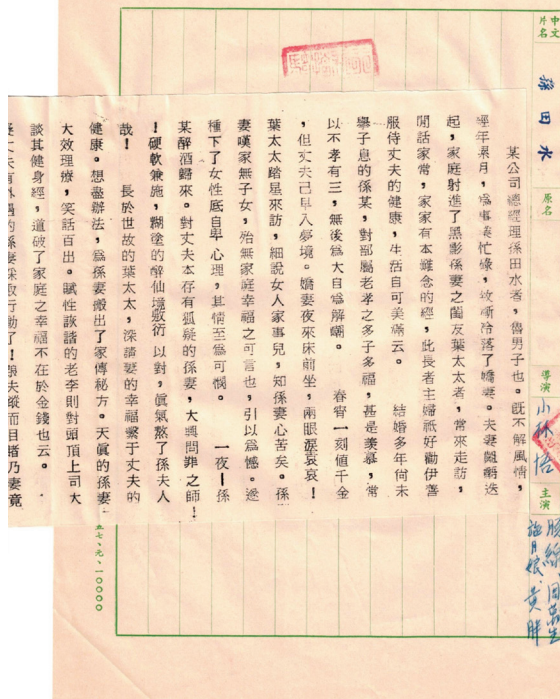 中文片名
孫田水
原名
導演
小林悟
主演
某公司總經理孫田水者,魯男子也。既不解風情,
經年累月,為事業忙碌,致漸冷落了嬌妻。夫妻齟齬迭
起,家庭射進了黑影孫妻之閨友葉太太者,常來走訪,
閒話家常,家家有本難念的經,此長者主婦祇好勸伊善
服侍丈夫的健康,生活自可美滿云。 結婚多年尚未
舉子息的孫某,對部屬老李之多子多福,甚是羨慕,常
以不孝有三,無後為大自為解嘲。 春宵一刻值千金
,但丈夫已早入夢境。嬌妻夜來床前坐,兩眼淚哀哀!
葉太太踏星來訪,細說女人家事兒,知孫妻心苦矣。孫
妻嘆家無子女,殆無家庭幸福之可言也,引以為憾。遂
種下了女性底自卑心理,其情至為可憫。 一夜|孫
某醉酒歸來。對丈夫本存有狐疑的孫妻,大興問罪之師!
!硬軟兼施,糊塗的醉仙境敷衍以對,眞氣熬了孫夫人
哉! 長於世故的葉太太,深諳妻的幸福繫于丈夫的
健康。想盡辦法,為孫妻搬出了家傳秘方。天眞的孫妻
大效理療,笑話百出。賦性詼諧的老李則對頭頂上司大
談其健身經,道破了家庭之幸福不在於金錢也云。
丈夫有外遇的孫妻採取行動了!
五七、元、一〇〇〇〇